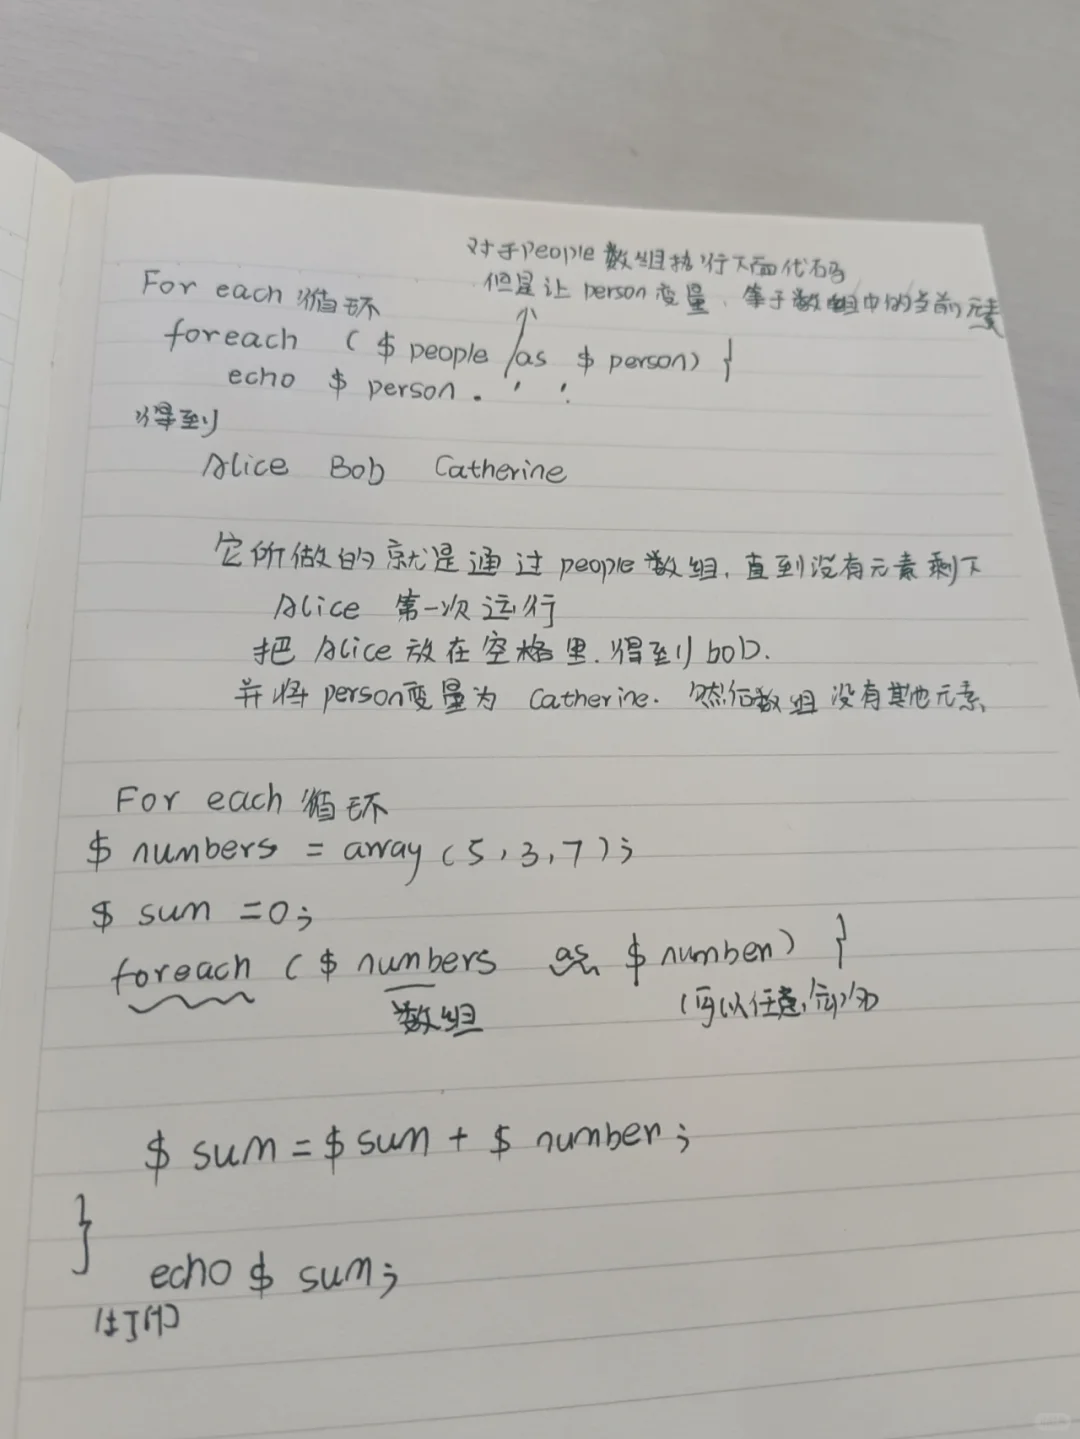 对于people数组执行下面代码
但是让 person 变量，等于数组中的当前元素
For each 循环
foreach ( $ people as $ person) }
echo $ person . ' ' ;
得到
Alice Bob Catherine
它所做的就是通过people数组，直到没有元素剩下
Alice 第一次运行
把 Alice 放在空格里．得到 bob.
并将 person变量为 Catherine. 然后数组没有其他元素
For each 循环
$ numbers = array (5，3，7);
$ sum =0;
foreach ( $ numbers as $ number) }
数组 (可以任意命名)
$ sum = $ sum + $ number ;
}
echo $ sum;